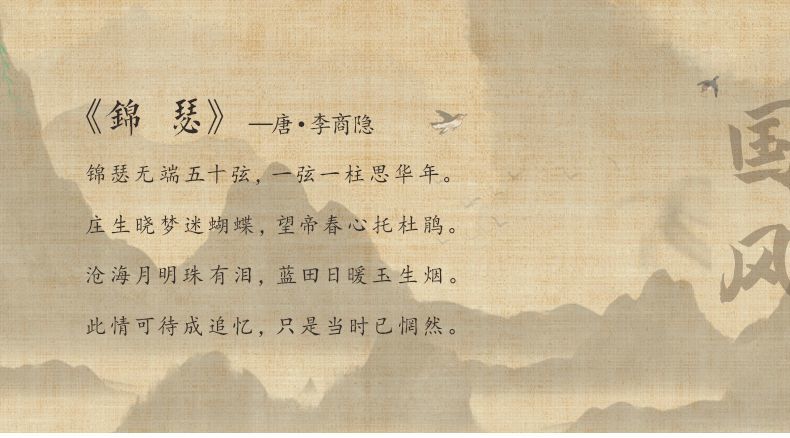 《錦 瑟》 —唐•李商隐
锦瑟无端五十弦，一弦一柱思华年。
庄生晓梦迷蝴蝶，望帝春心托杜鹃。
沧海月明珠有泪，蓝田日暖玉生烟。
此情可待成追忆，只是当时已惘然。
国风